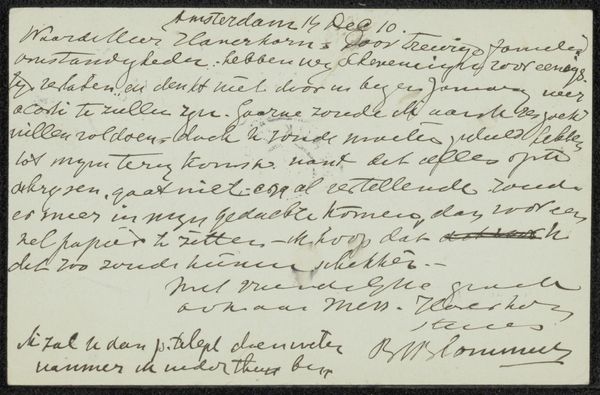 Amsterdam 14 Dec 10.
Waarde Heer Haverkorn. Door treurige familie
omstandigheden hebben wy Scheveningen voor eenige
tyd verlaten, en denkt niet voor in begin January weer
te zullen zyn. Gaarne zoude ik aan Uw
willen voldoen, doch U zoude moeten geduld hebben
tot myn terugkomst. want dat alles op te
schryven, gaat niet. en al vertellende zoude
er meer in myn gedachte komen, dan voor een
vel papier te zitten. Ik hoop dat U
dat zoo zoude kunnen schikken. —
Met vriendelyke groete
ook aan Mevr. Haverkorn
B J Blommers
Ik zal U dan p. telept doen weten
wanneer ik weder thuis ben